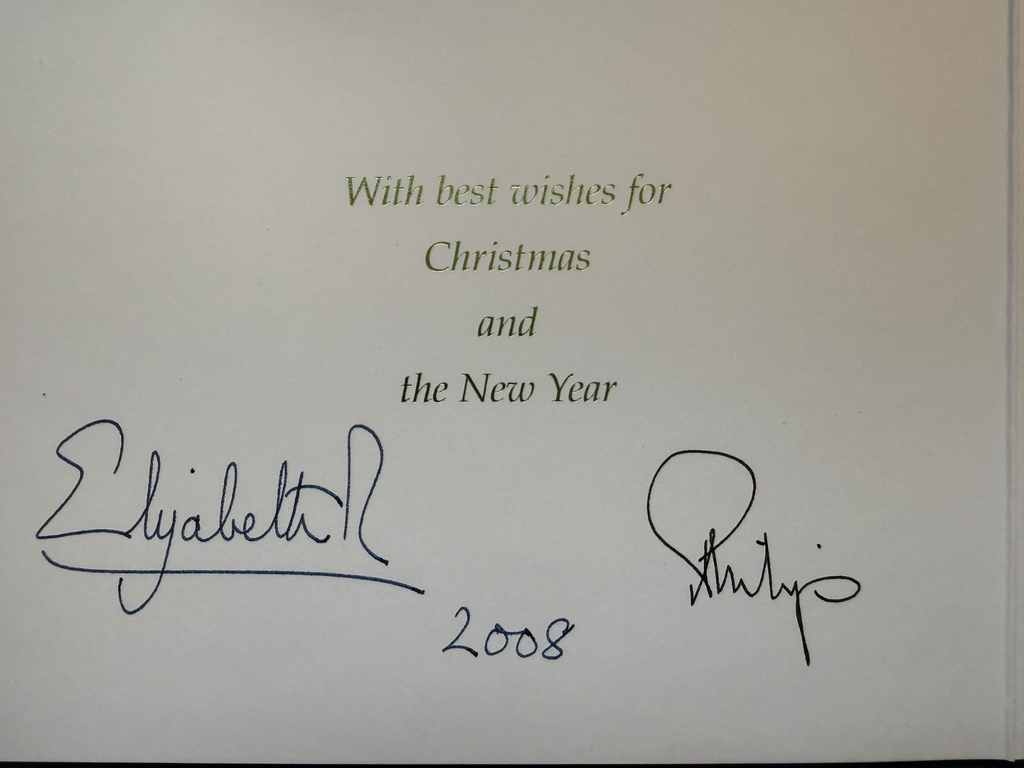 With best wishes for
Christmas
and
the New Year
Elizabeth R
Philip
2008